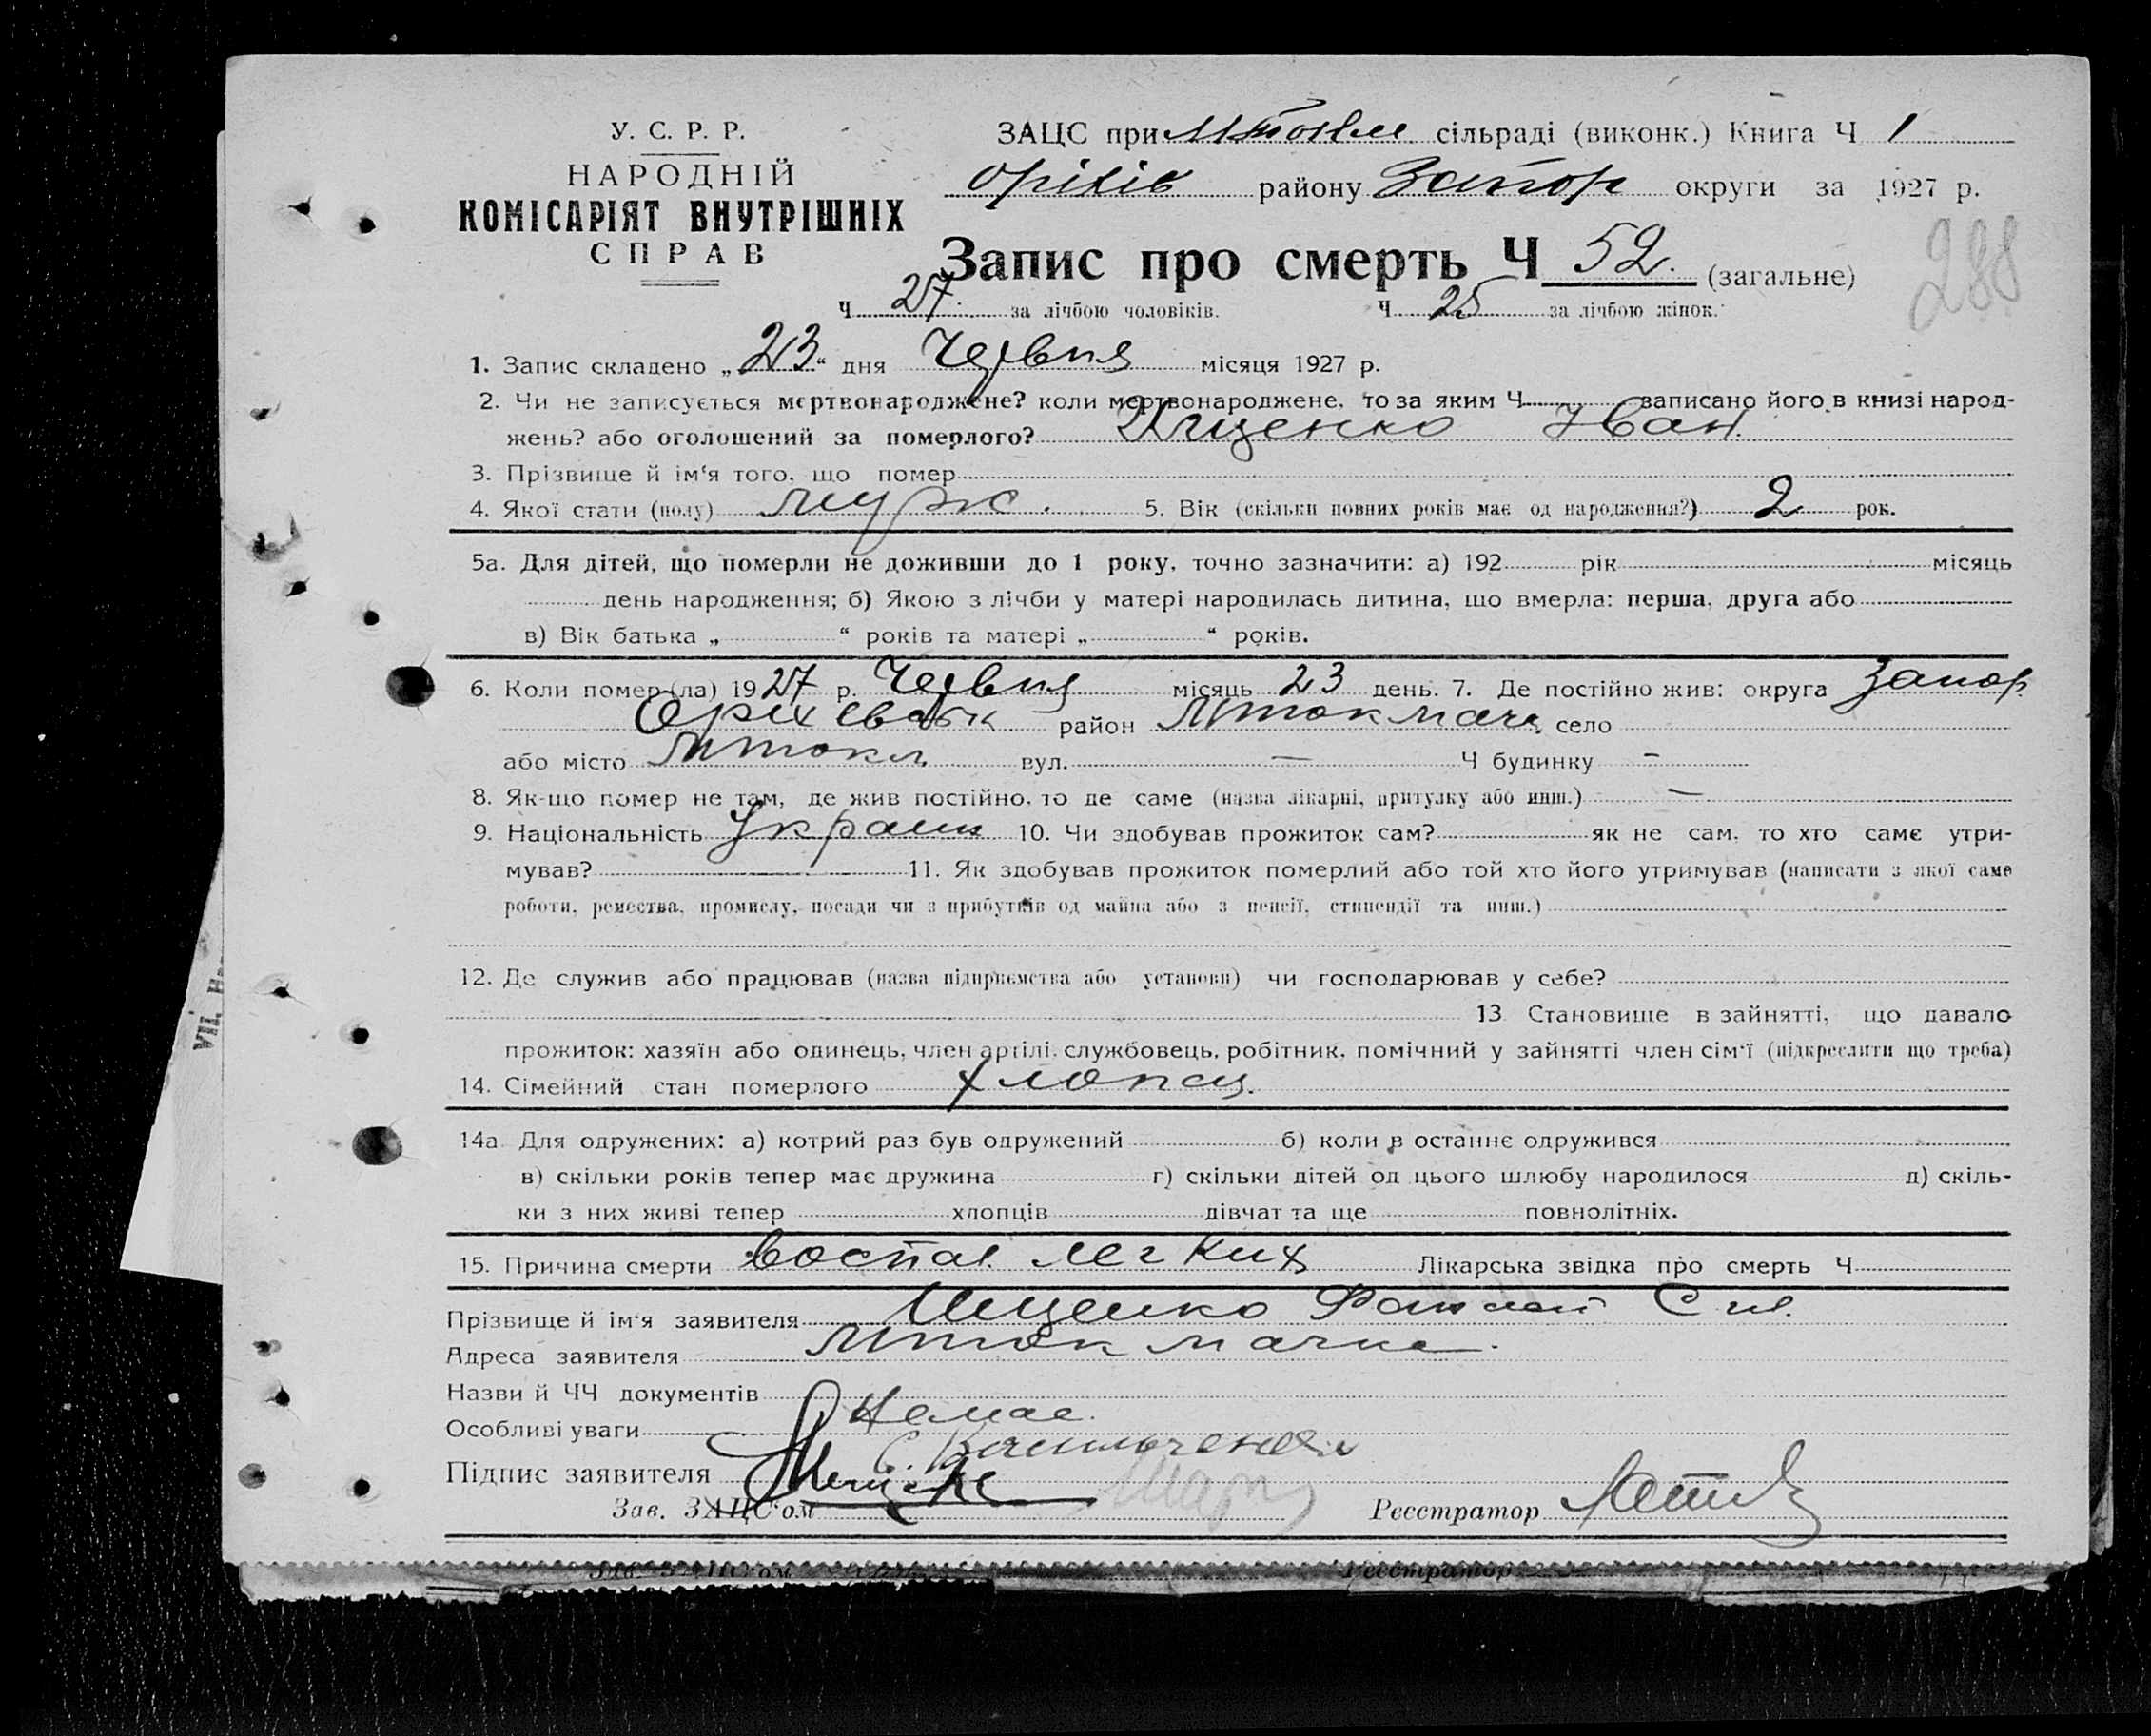 У. С. Р. Р.
НАРОДНІЙ
КОМІСАРІЯТ ВНУТРІШНІХ
СПРАВ
ЗАЦС при сільраді (виконк.) Книга Ч 1
Оріхів району Запор округи за 1927 р.
Запис про смерть Ч 52. (загальне)
288
Ч 27. за лічбою чоловіків. Ч 25 за лічбою жінок.
1. Запис складено „23“ дня Червня місяця 1927 р.
2. Чи не записується мертвонароджене? коли мертвонароджене, то за яким Ч записано його в книзі народ-
жень? або оголошений за померлого? Ищенко Іван.
3. Прізвище й ім‘я того, що помер
4. Якої стати (полу) муж. 5. Вік (скільки повних років має од народження?) 2 рок.
5а. Для дітей, що померли не доживши до 1 року, точно зазначити: а) 192 рік місяць
день народження; б) Якою з лічби у матері народилась дитина, що вмерла: перша, друга або
в) Вік батька „ “ років та матері „ “ років.
6. Коли помер (ла) 1927 р. Червня місяць 23 день. 7. Де постійно жив: округа Запор
район Мтокмач село
або місто Мтокм вул. — Ч будинку -
8. Як-що помер не там, де жив постійно, то де саме (назва лікарні, притулку або инш.) —
9. Національність 10. Чи здобував прожиток сам? як не сам, то хто саме утри-
мував? 11. Як здобував прожиток померлий або той хто його утримував (написати з якої саме
роботи, ремества, промислу, посади чи з прибутків од майна або з пенсії, стипендії та инш.)
12. Де служив або працював (назва підприємства або установи) чи господарював у себе?
13 Становище в зайнятті, що давало
прожиток: хазяїн або одинець, член артілі, службовець, робітник, помічний у зайнятті член сім‘ї (підкреслити що треба)
14. Сімейний стан померлого хлопець.
14а. Для одружених: а) котрий раз був одружений б) коли в останнє одружився
в) скільки років тепер має дружина г) скільки дітей од цього шлюбу народилося д) скіль-
ки з них живі тепер хлопців дівчат та ще повнолітніх.
15. Причина смерти воспал легких Лікарська звідка про смерть Ч
Прізвище й ім‘я заявителя Ищенко
Адреса заявителя Мток мачка.
Назви й ЧЧ документів
Особливі уваги Немае.
Підпис заявителя
Зав. ЗАЦС‘ом Реєстратор
Зав. ЗАЦС‘ом Реєстратор